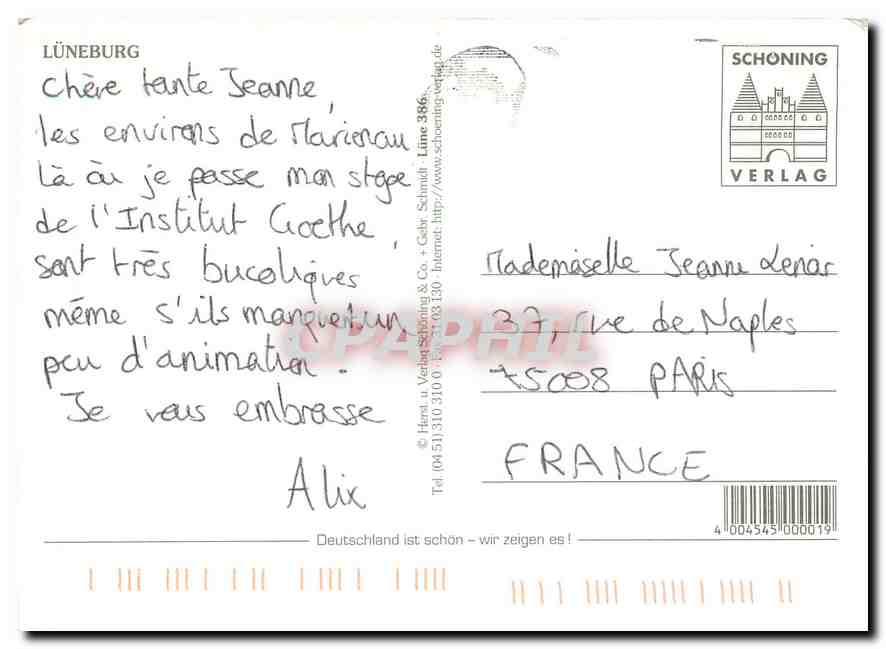 LÜNEBURG
Chère tante Jeanne,
les environs de Marienau
Là où je passe mon stage
de l'Institut Goethe,
sont très bucoliques
même s'ils manquent un
peu d'animation.
Je vous embrasse
Alix
© Herst. u. Verlag Schöning & Co. + Gebr. Schmidt · Lüne 386
Tel. (04 51) 310 310 0 · Fax 31 03 130 · Internet: http://www.schoening-verlag.de
SCHÖNING
VERLAG
Mademoiselle Jeanne
37, rue de Naples
75008 PARIS
FRANCE
4 004545 000019
Deutschland ist schön – wir zeigen es!
CPAPHIL